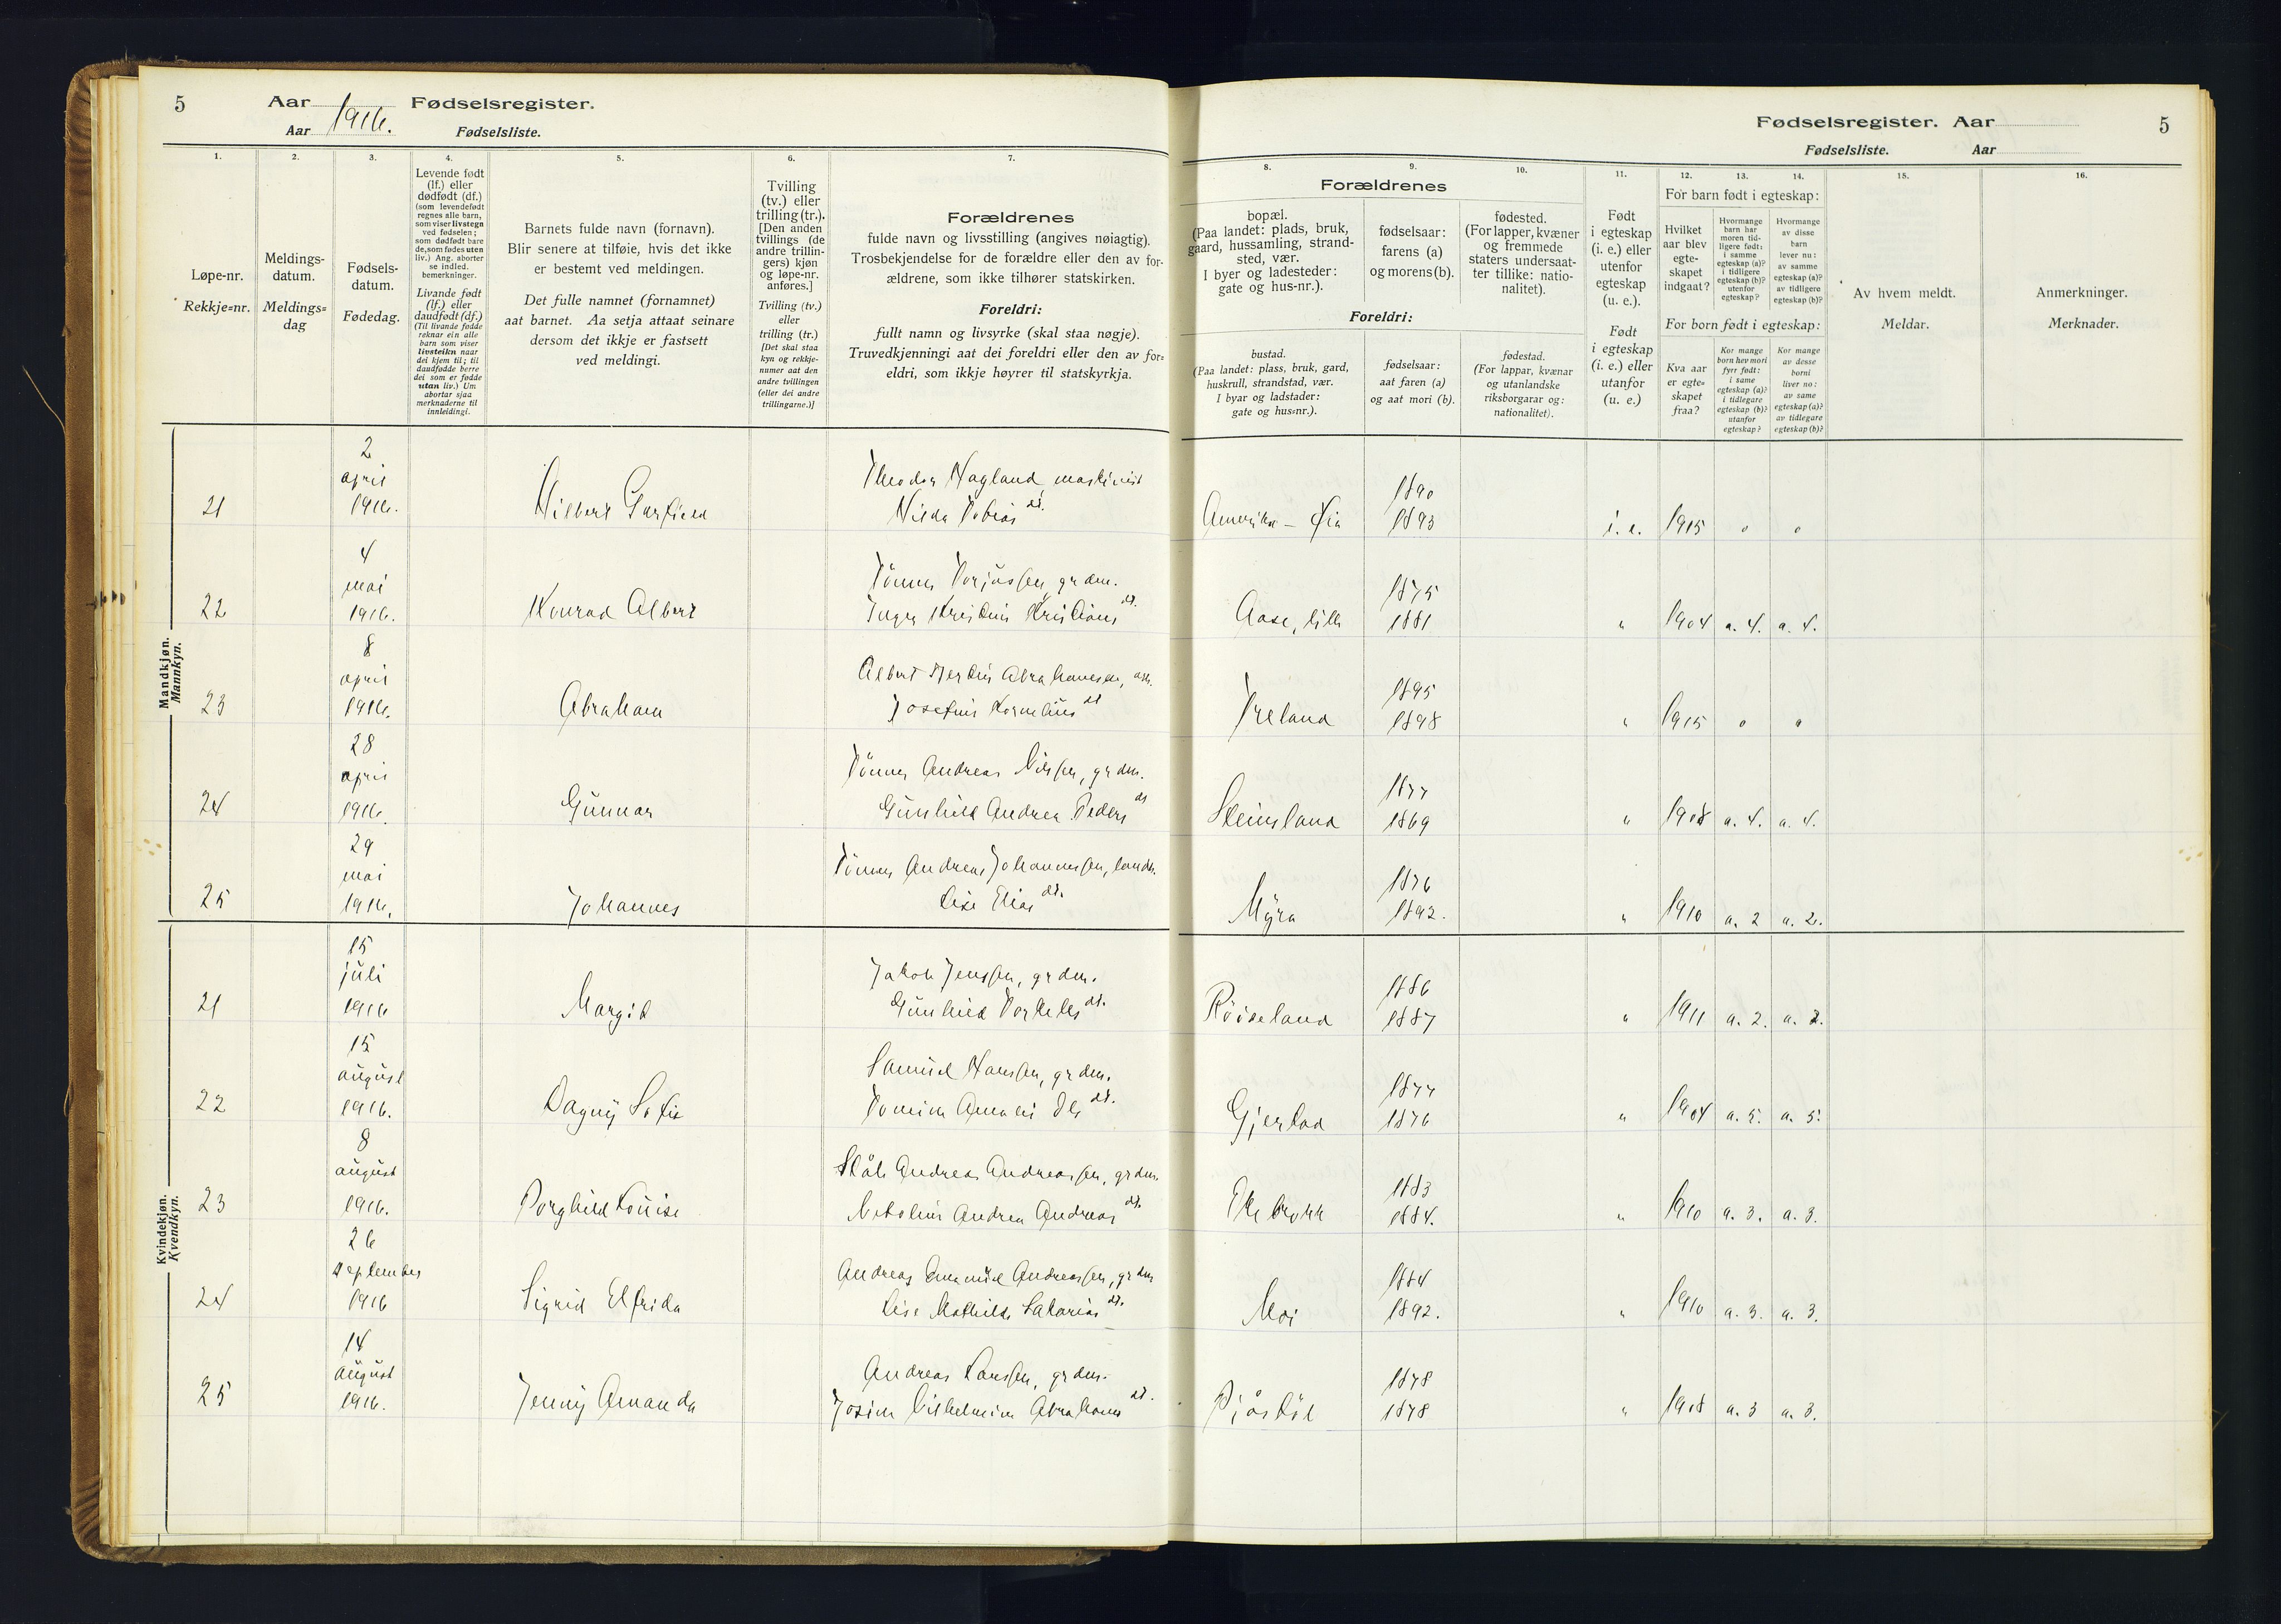 5
Aar 1916. Fødselsregister.
Aar Fødselsliste.
1.
2.
3.
4.
5.
6.
7.
Løpe-nr.
Rekkje-nr.
Meldings-
datum.
Meldings-
dag
Fødsels-
datum.
Fødedag.
Levende født
(lf.) eller
dødfødt (df.)
(som levendefødt
regnes alle barn,
som viser livstegn
ved fødselen;
som dødfødt bare
de, som fødes uten
liv.) Ang. aborter
se indled.
bemerkninger.
Livande født
(lf.) eller
daudfødt (df.)
(Til livande fødde
reknar ein alle
barn som viser
livsteikn naar
dei kjem til; til
daudfødde berre
dei som er fødde
utan liv.) Um
abortar sjaa
merknaderne til
innleidingi.
Barnets fulde navn (fornavn).
Blir senere at tilføie, hvis det ikke
er bestemt ved meldingen.
Det fulle namnet (fornamnet)
aat barnet. Aa setja attaat seinare
dersom det ikkje er fastsett
ved meldingi.
Tvilling
(tv.) eller
trilling (tr.).
[Den anden
tvillings (de
andre trillin-
gers) kjøn
og løpe-nr.
anføres.]
Tvilling (tv.)
eller
trilling (tr.)
[Det skal staa
kyn og rekkje-
numer aat den
andre tvillingen
(eller dei andre
trillingarne.)]
Forældrenes
fulde navn og livsstilling (angives nøiagtig).
Trosbekjendelse for de forældre eller den av for-
ældrene, som ikke tilhører statskirken.
Foreldri:
fullt namn og livsyrke (skal staa nøgje).
Truvedkjenningi aat dei foreldri eller den av for-
eldri, som ikkje høyrer til statskyrkja.
Mandkjøn.
Mannkyn.
2
april
21 1916. Hilbert Garfield
Theodor Hagland, maskinist
Hilda Tobias dt.
4
mai
22 1916. Konrad Albert
Tønnes Torjussen, grdm.
Inger Kristine Kristians dt.
8
april
23 1916. Abraham
Albert Bertin Abrahamsen,
Josefine Kornelius dt
28
april
24 1916. Gunnar
Tønnes Andreas Nilssen, grdm.
Gunhild Andrea Peders dt
29
mai
25 1916. Johannes
Tønnes Andreas Johannessen,
Lise Elias dt.
Kvindekjøn.
Kvendkyn.
15
juli
21 1916 Margit
Jakob Jenssen, grdm.
Gunhild Torkels dt.
15
august
22 1916. Dagny Sofie
Samuel Hanssen, grdm.
Tomine Amalie Ols dt.
8
august
23 1916. Borghild Louise
Ståle Andreas Andreassen, grdm.
Netoline Andrea Andreas dt.
26
september
24 1916 Sigrid Elfrida
Andreas Emanuel Andreassen, grdm
Lise Mathilde Sakarias dt.
14
august
25 1916. Jenny Amanda
Andreas Larssen, grdm.
Josine Vilhelmine Abrahams dt.
Fødselsregister. Aar
5
Fødselsliste. Aar
8.
9.
10.
11.
12.
13.
14.
15.
16.
Forældrenes
bopæl.
(Paa landet: plads, bruk,
gaard, hussamling, strand-
sted, vær.
I byer og ladesteder:
gate og hus-nr.).
fødselsaar:
farens (a)
og morens (b).
fødested.
(For lapper, kvæner
og fremmede
staters undersaat-
ter tillike: natio-
nalitet).
Foreldri:
bustad.
(Paa landet: plass, bruk, gard,
huskrull, strandstad, vær.
I byar og ladstader:
gate og hus=nr.).
fødselsaar:
aat faren (a)
og aat mori (b).
fødestad.
(For lappar, kvænar
og utanlandske
riksborgarar og:
nationalitet).
Født
i egteskap
(i. e.) eller
utenfor
egteskap
(u. e.).
Født
i egteskap
(i. e.) eller
utanfor
(u. e.)
For barn født i egteskap:
Hvilket
aar blev
egte-
skapet
indgaat?
Hvormange
barn har
moren tid-
ligere født:
i samme
egteskap (a)?
i tidligere
egteskap (b)?
utenfor
egteskap?
Hvormange
av disse
barn
lever nu:
av samme
egteskap (a)?
av tidligere
egteskap (b)?
For born født i egteskap:
Kva aar
er egte-
skapet
fraa?
Kor mange
born hev mori
fyrr født:
i same
egteskap (a)?
i tidlegare
egteskap (b)?
utanfor
egteskap?
Kor mange
av desse
borni
liver no:
av same
egteskap (a)?
av tidlegare
egteskap (b)?
Av hvem meldt.
Meldar.
Anmerkninger.
Merknader.
1890
Amerika - Øie 1893 i. e. 1915 0 0
1875
Aase, lille 1881 " 1904 a. 4. a. 4.
1895
Ireland 1898 " 1915 0 0
1877
Steinsland 1869 " 1908 a. 4. a. 4.
1876
Myra 1892. " 1910 a. 2 a. 2.
1886
Røiseland 1887 " 1911 a. 2. a. 2.
1877
Gjerstad 1876 " 1904 a. 5. a. 5.
1883
1884. " 1910 a. 3. a. 3.
1884
Moi 1892. " 1910 a. 3. a. 3.
1878
1878 " 1908 a. 3 a. 3.